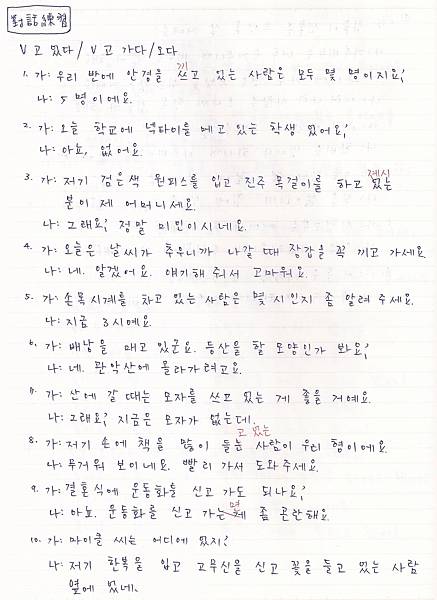 對話練習
V고 있다 / V고 가다/오다
1. 가: 우리 반에 안경을 쓰고 있는 사람은 모두 몇 명이지요?
끼
나: 5명이에요.
2. 가: 오늘 학교에 넥타이를 메고 있는 학생 있어요?
나: 아뇨, 없어요.
3. 가: 저기 검은색 원피스를 입고 진주 목걸이를 하고 있는
계신
분이 제 어머니세요.
나: 그래요? 정말 미인이시네요.
4. 가: 오늘은 날씨가 추우니까 나갈 때 장갑을 꼭 끼고 가세요.
나: 네. 알겠어요. 얘기해 줘서 고마워요.
5. 가: 손목시계를 차고 있는 사람은 몇 시인지 좀 알려 주세요.
나: 지금 3시예요.
6. 가: 배낭을 매고 있군요. 등산을 할 모양인가 봐요?
나: 네. 관악산에 올라가려고요.
7. 가: 산에 갈 때는 모자를 쓰고 있는 게 좋을 거예요.
나: 그래요? 지금은 모자가 없는데.
고 있는
8. 가: 저기 손에 책을 많이 들는 사람이 우리 형이에요.
나: 무거워 보이네요. 빨리 가서 도와주세요.
9. 가: 결혼식에 운동화를 신고 가도 되나요?
면
나: 아뇨. 운동화를 신고 가는 게 좀 곤란해요.
10. 가: 마이클 씨는 어디에 있지?
나: 저기 한복을 입고 고무신을 신고 꽃을 들고 있는 사람
옆에 있네.